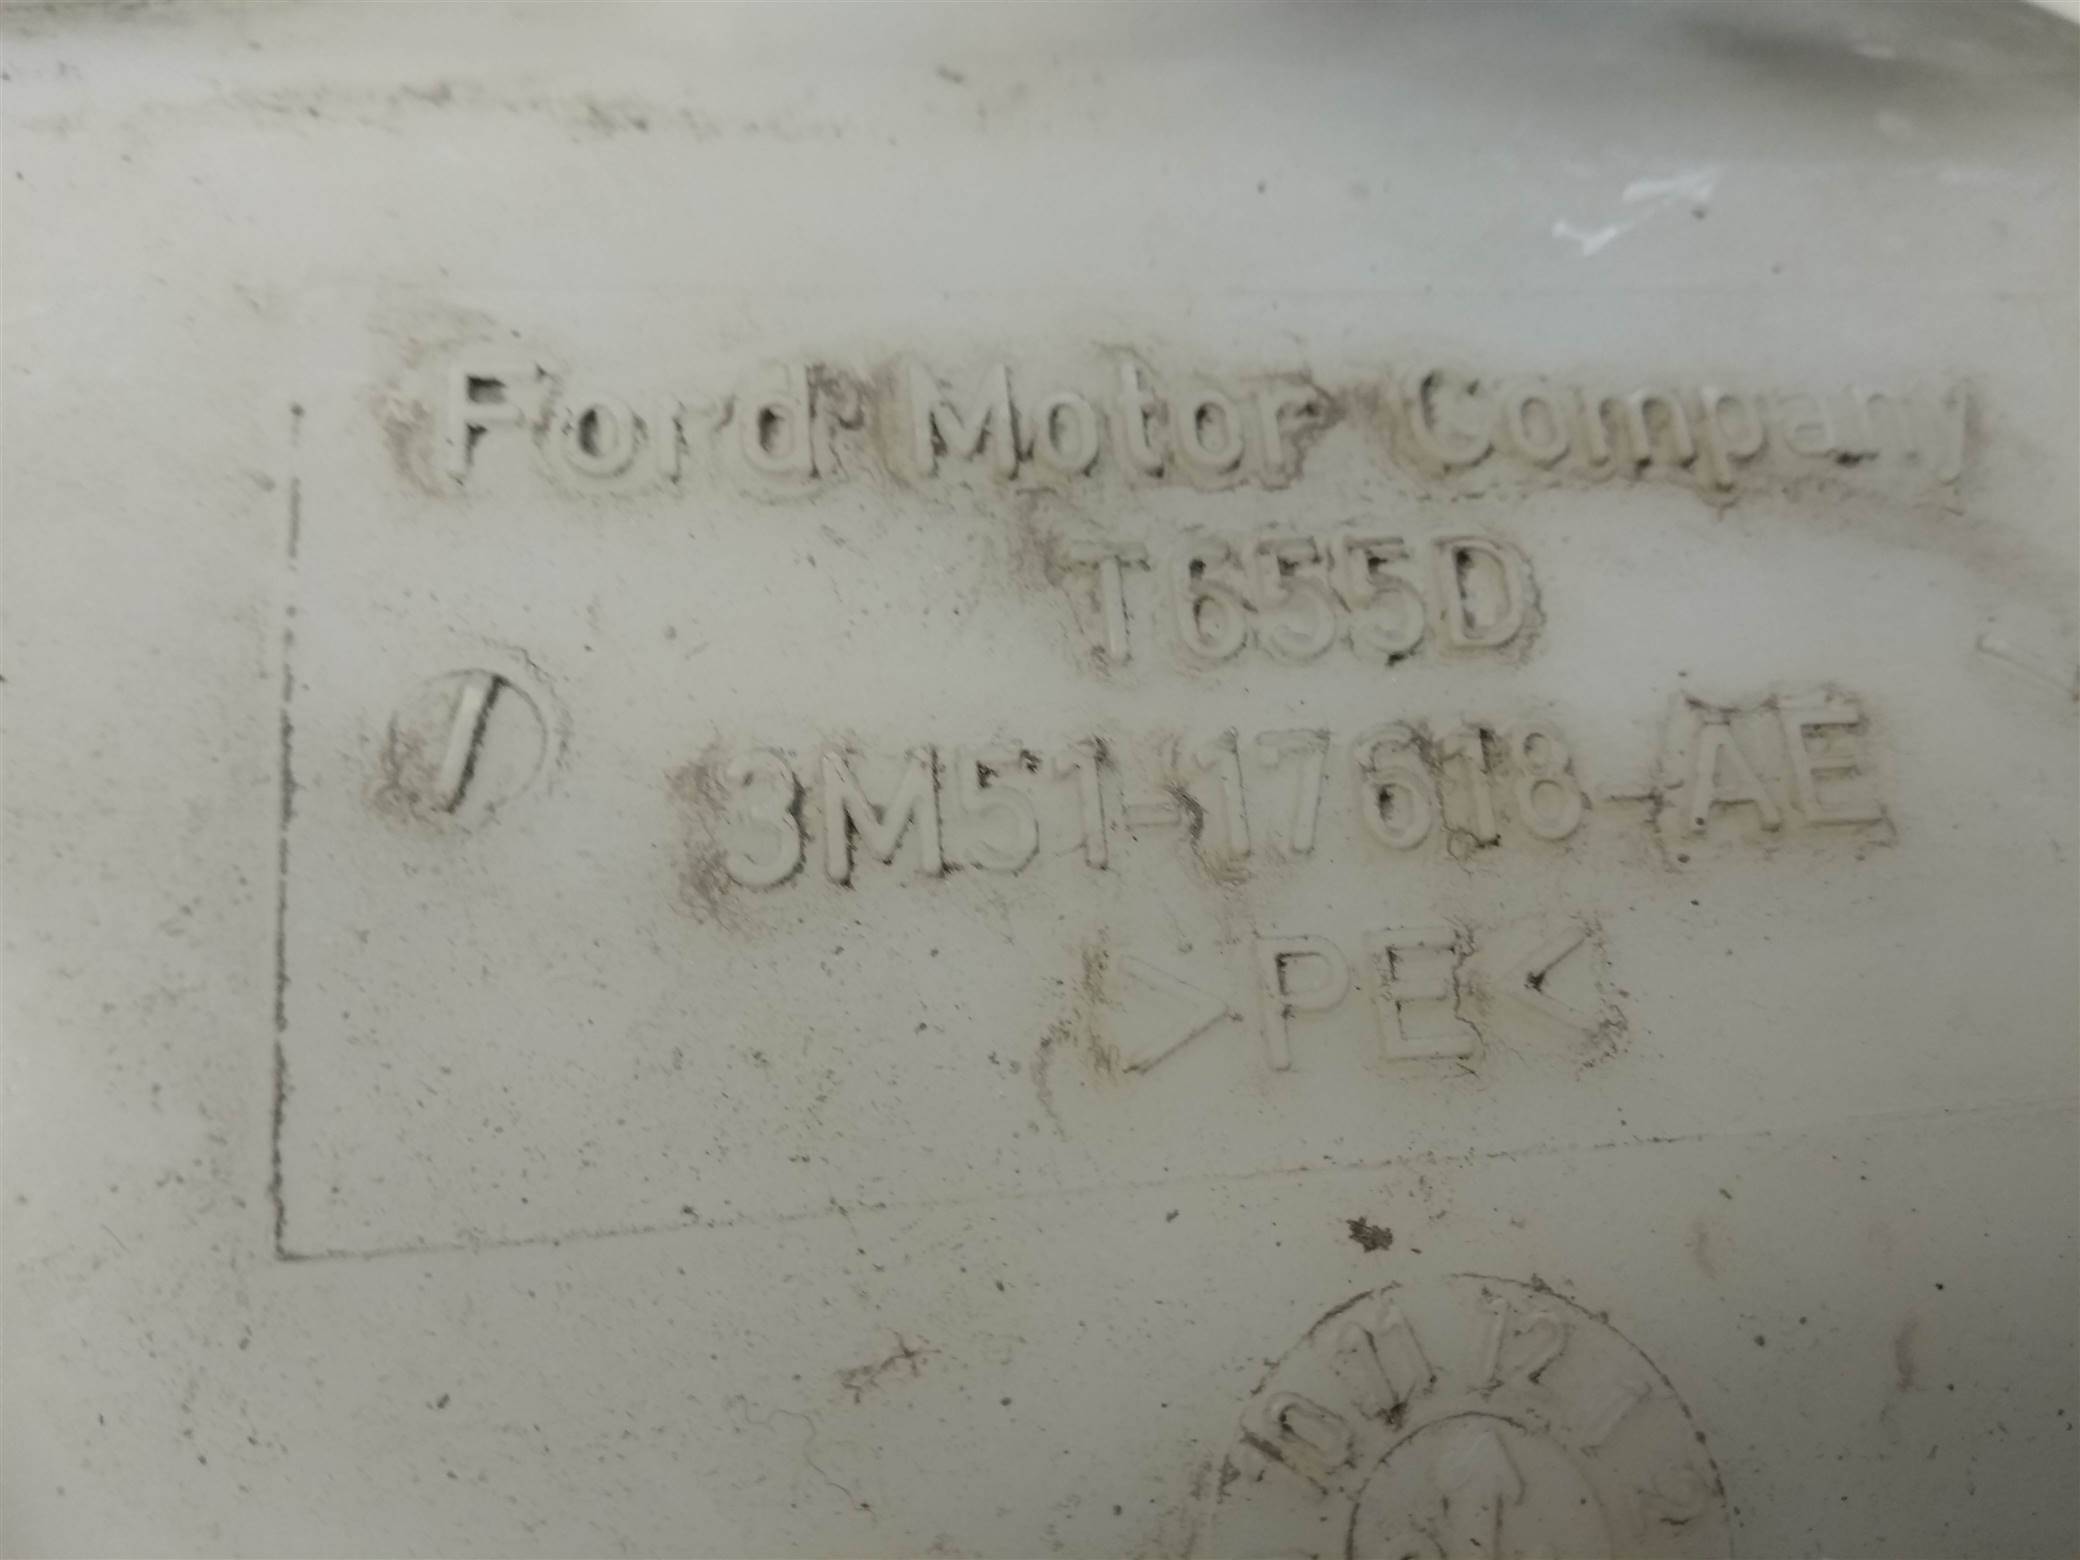 Ford Motor Company
T655D
1
3M51-17618-AE
>PE<
10 11 12 1 2